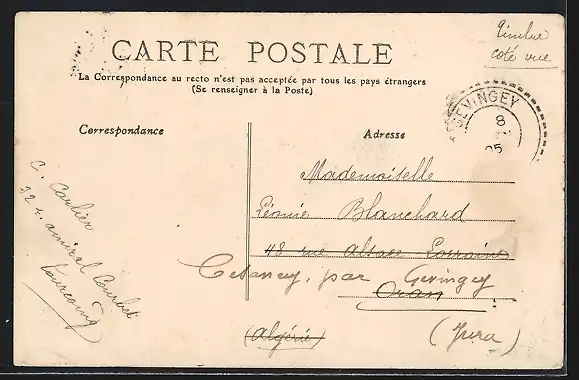 Timbre
coté vue
CARTE POSTALE
La Correspondance au recto n'est pas acceptée par tous les pays étrangers
(Se renseigner à la Poste)
GEVINGEY
8
05
Correspondance
Adresse
C. Carlier
32 r. amiral Courbet
Tourcoing
Mademoiselle
Léonie Blanchard
48 rue Alsace Lorraine
Cesancey, par Gevingey
Oran
(Algérie)
(Jura)